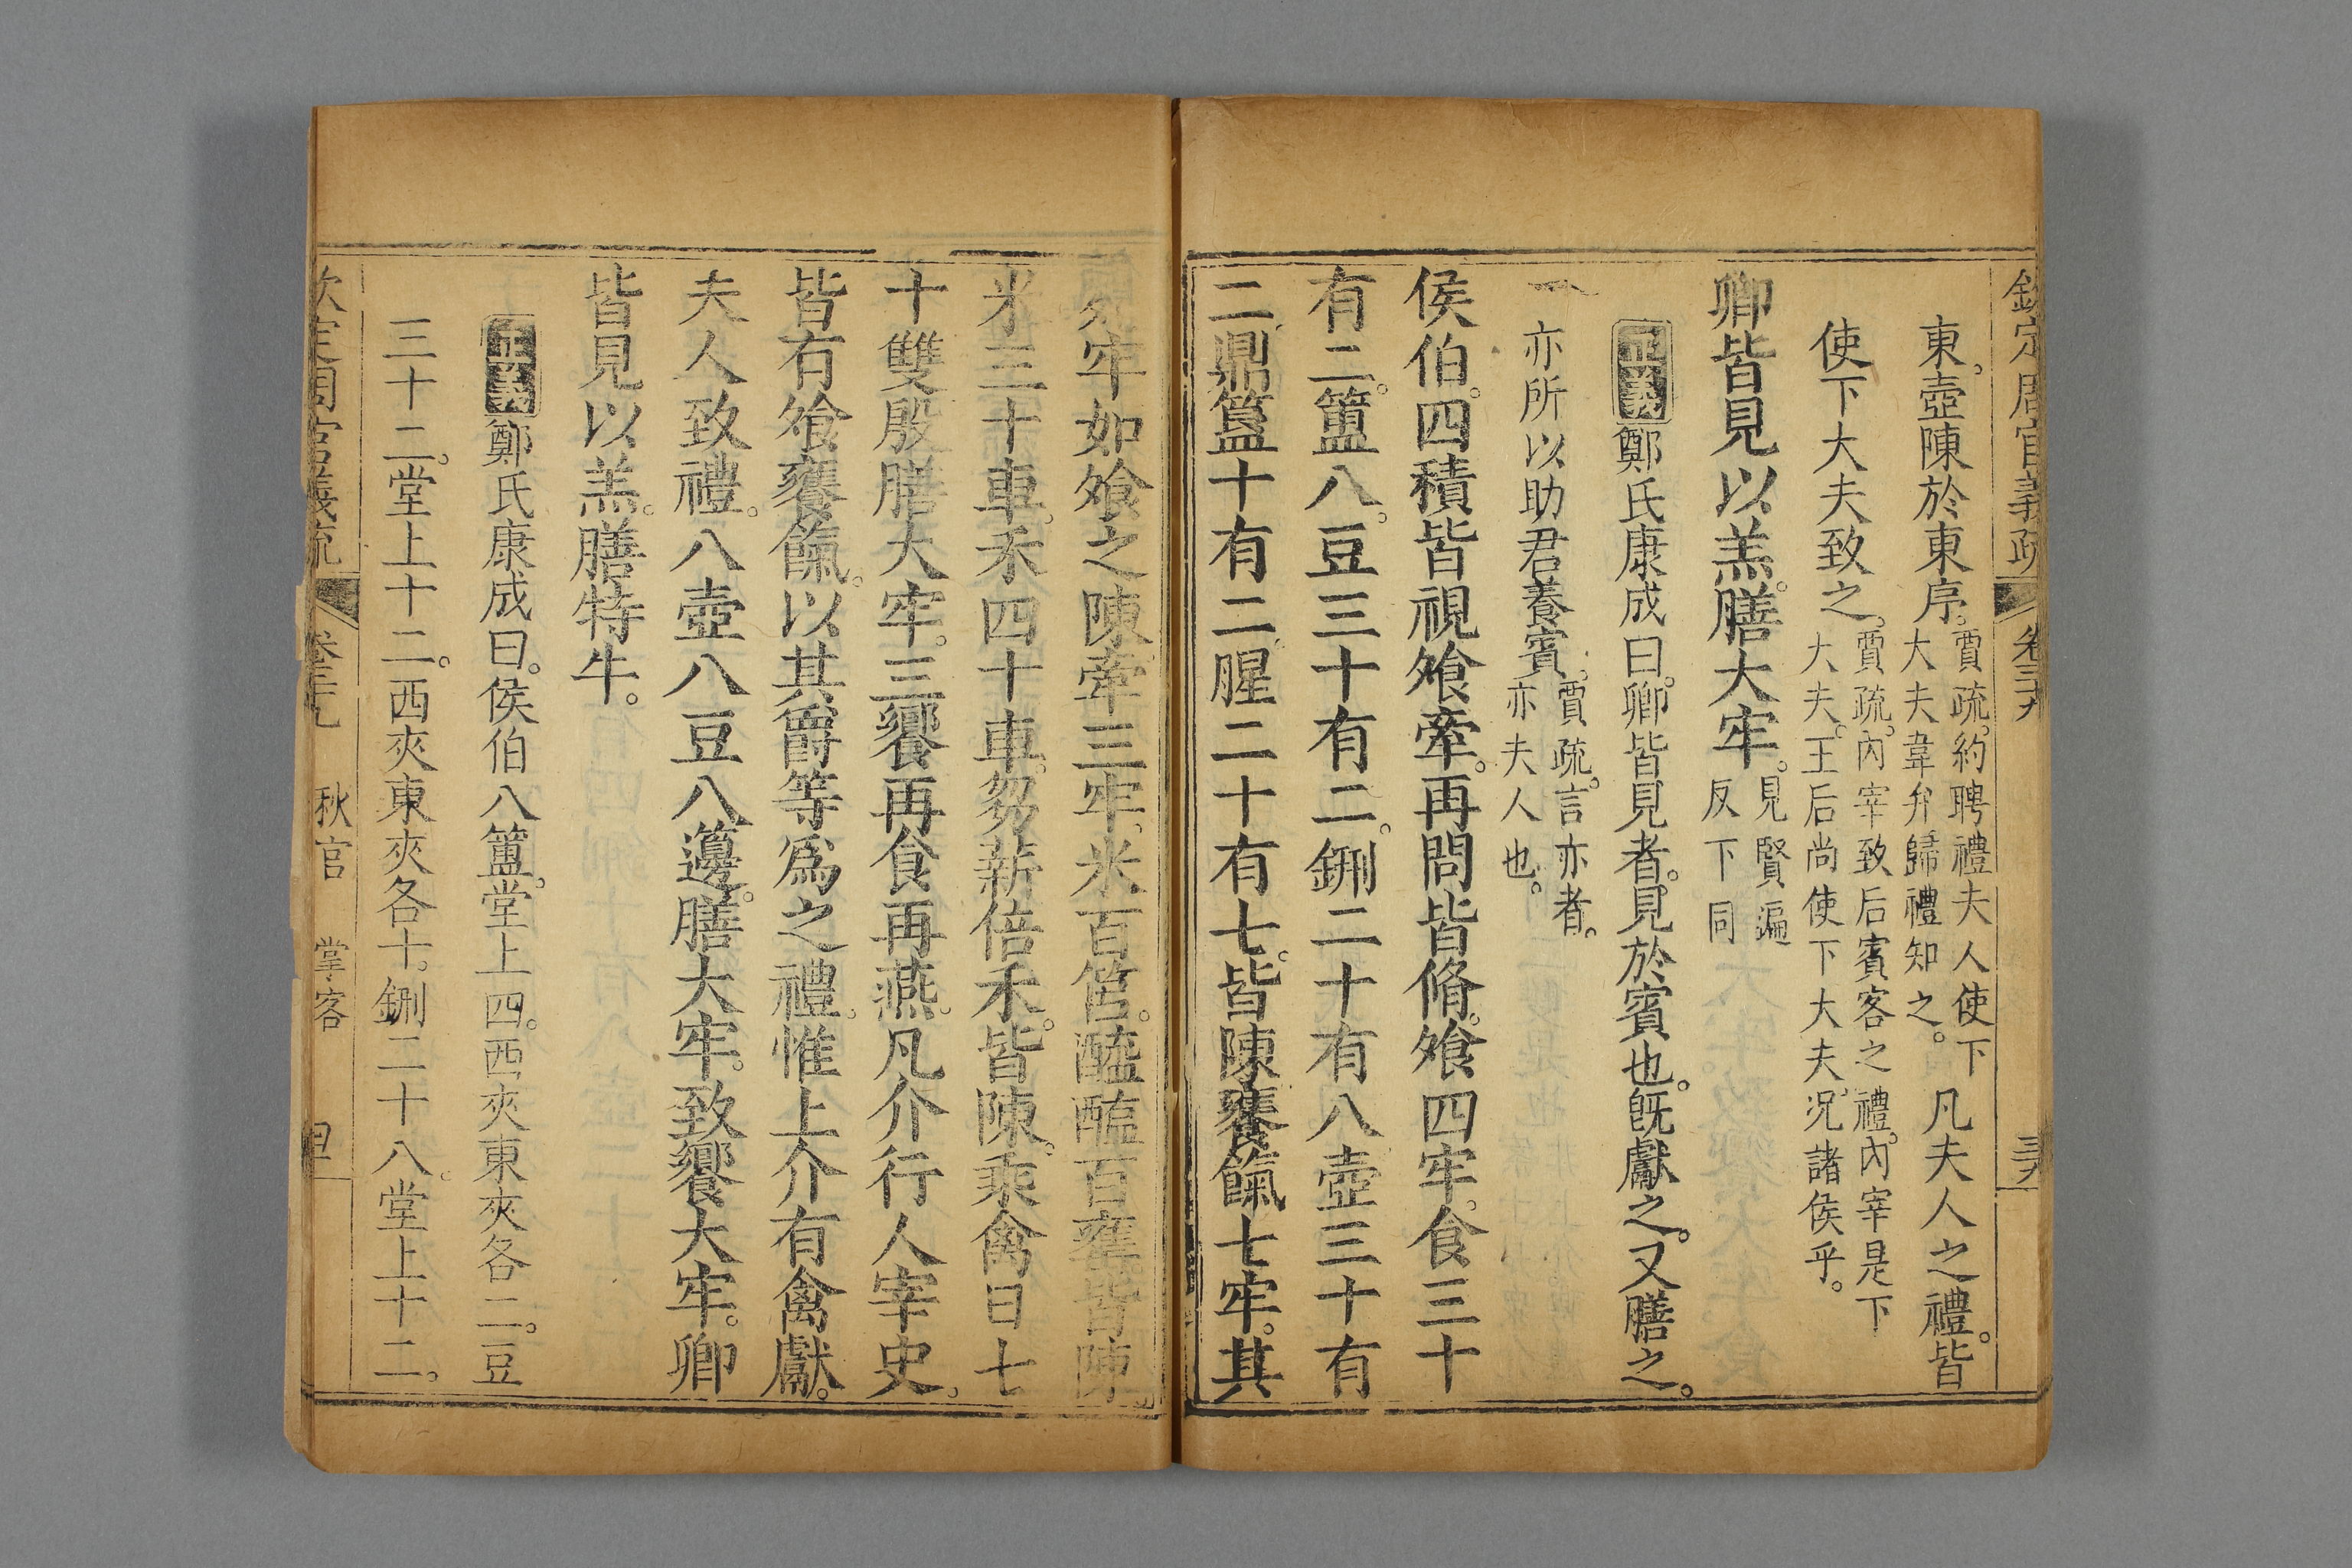 欽定周官義疏 卷三十九 三九
東。壺陳於東序。賈疏。約聘禮夫人使下大夫韋弁歸禮知之。凡夫人之禮。皆
使下大夫致之。賈疏。內宰致后賓客之禮。內宰是下大夫。王后尚使下大夫。況諸侯乎。
卿皆見以羔。膳大牢。見賢遍反下同
正義鄭氏康成曰。卿皆見者。見於賓也。旣獻之。又膳之。
亦所以助君養賓。賈疏。言亦者。亦夫人也。
侯伯。四積皆視飧牽。再問皆脩。飧四牢。食三十
有二。簠八。豆三十有二。鉶二十有八。壺三十有
二。鼎簋十有二。腥二十有七。皆陳。饔餼七牢。其
牢如飧之陳。牽三牢。米百筥。醯醢百罋。皆陳。
米三十車。禾四十車。芻薪倍禾。皆陳。乘禽日七
十雙。殷膳大牢。三饗再食再燕。凡介行人宰史。
皆有飧饔餼。以其爵等爲之禮。惟上介有禽獻。
夫人致禮。八壺八豆八籩。膳大牢。致饗大牢。卿
皆見以羔。膳特牛。
正義鄭氏康成曰。侯伯八簠。堂上四。西夾東夾各二。豆
三十二。堂上十二。西夾東夾各十。鉶二十八。堂上十二。
欽定周官義疏 秋官 掌客